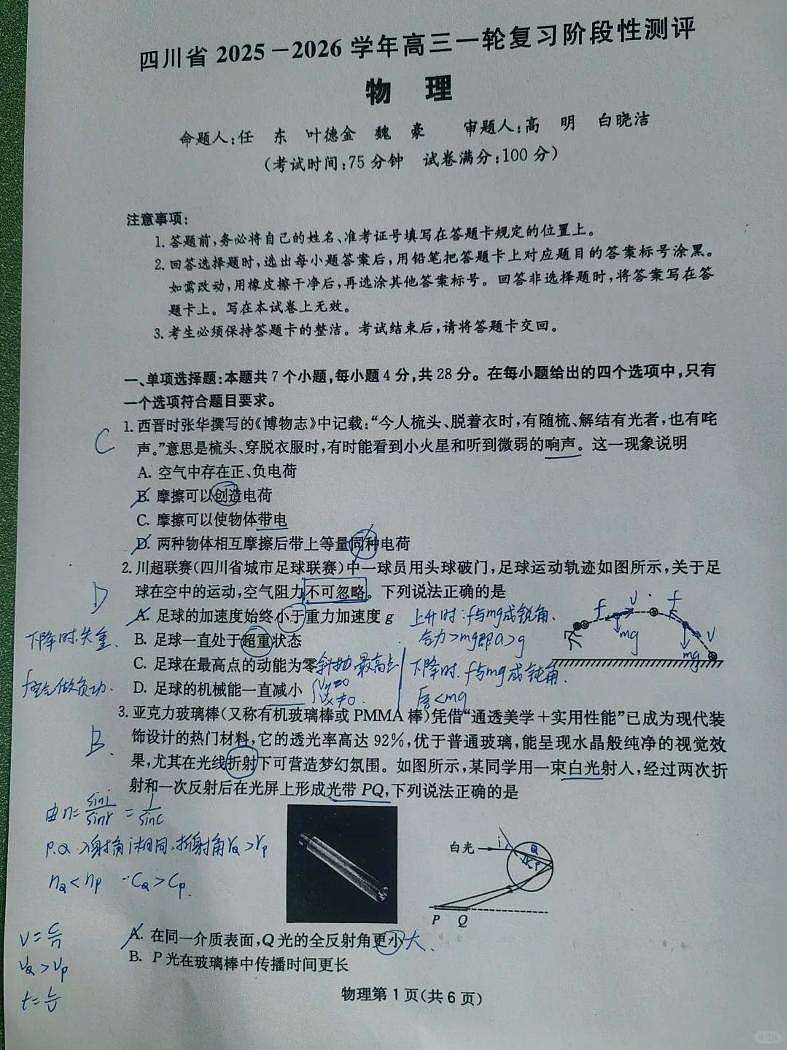 四川省 2025－2026 学年高三一轮复习阶段性测评
物 理
命题人:任 东 叶德金 魏 豪 审题人:高 明 白晓洁
(考试时间:75 分钟 试卷满分:100 分)
注意事项:
1. 答题前,务必将自己的姓名、准考证号填写在答题卡规定的位置上。
2. 回答选择题时,选出每小题答案后,用铅笔把答题卡上对应题目的答案标号涂黑。
如需改动,用橡皮擦干净后,再选涂其他答案标号。回答非选择题时,将答案写在答
题卡上。写在本试卷上无效。
3. 考生必须保持答题卡的整洁。考试结束后,请将答题卡交回。
一、单项选择题:本题共 7 个小题,每小题 4 分,共 28 分。在每小题给出的四个选项中,只有
一个选项符合题目要求。
C
1. 西晋时张华撰写的《博物志》中记载:“今人梳头、脱着衣时,有随梳、解结有光者,也有咤
声。”意思是梳头、穿脱衣服时,有时能看到小火星和听到微弱的响声。这一现象说明
A. 空气中存在正、负电荷
B. 摩擦可以创造电荷
C. 摩擦可以使物体带电
D. 两种物体相互摩擦后带上等量同种电荷
D
2. 川超联赛(四川省城市足球联赛)中一球员用头球破门,足球运动轨迹如图所示,关于足
球在空中的运动,空气阻力不可忽略。下列说法正确的是
A. 足球的加速度始终小于重力加速度 g
上升时:f与mg成锐角.
合力>mg即a>g
f V f V mg mg
下降时.失重.
B. 足球一直处于超重状态
C. 足球在最高点的动能为零
斜抛 最高点
下降时.f与mg成钝角.
f空气做负功.
D. 足球的机械能一直减小
Vy=0
Vx≠0.
F合<mg
B.
3. 亚克力玻璃棒(又称有机玻璃棒或 PMMA 棒)凭借“通透美学+实用性能”已成为现代装
饰设计的热门材料,它的透光率高达 92%,优于普通玻璃,能呈现水晶般纯净的视觉效
果,尤其在光线折射下可营造梦幻氛围。如图所示,某同学用一束白光射入,经过两次折
射和一次反射后在光屏上形成光带 PQ,下列说法正确的是
由n=sini/sinr=1/sinC
P.Q 入射角i相同.折射角rQ>rP
nQ<nP ∴CQ>CP.
白光 i Q P
P Q
A. 在同一介质表面,Q 光的全反射角更小
大.
v=c/n
vQ>vP
t=L/v
B. P 光在玻璃棒中传播时间更长
物理第 1 页(共 6 页)